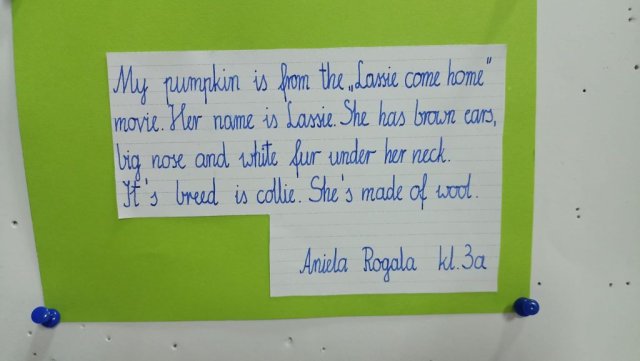 My pumpkin is from the „Lassie come home"
movie. Her name is Lassie. She has brown ears,
big nose and white fur under her neck.
It's breed is collie. She's made of wool.
Aniela Rogala kl. 3a